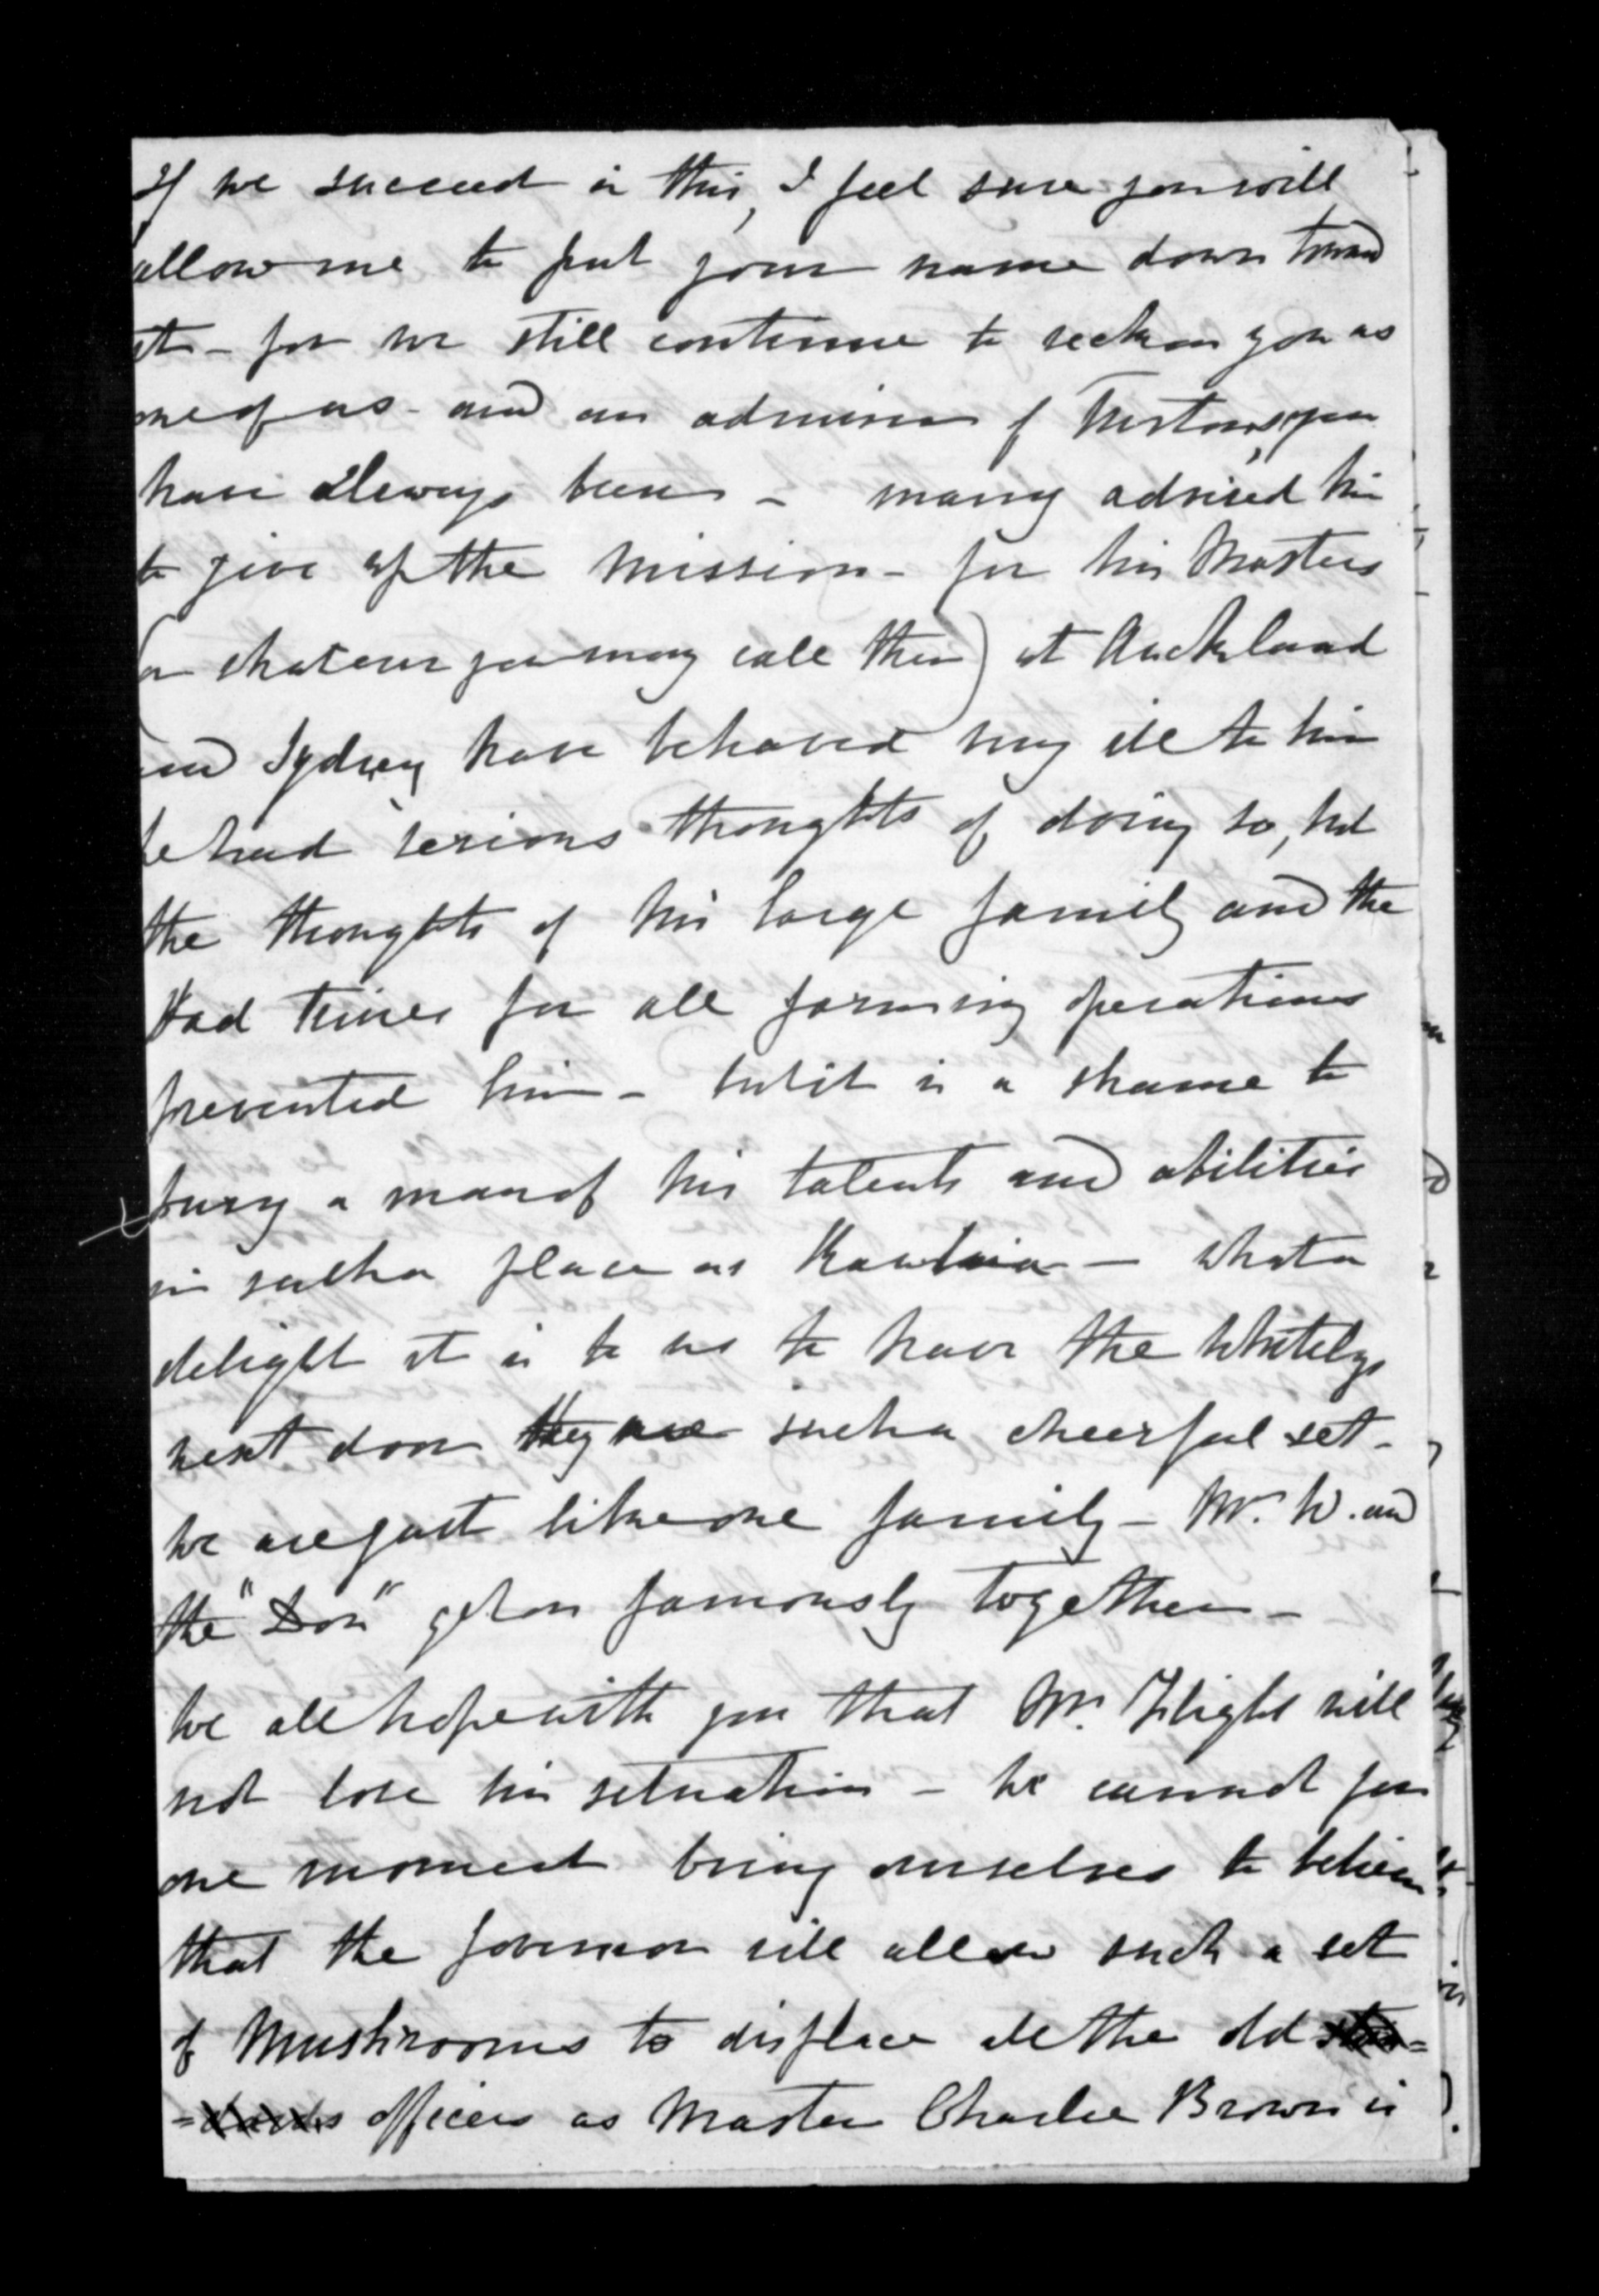 If we succeed in this, I feel sure you will
allow me to put your name down toward
it - for we still continue to reckon you as
one of us - and an admirer of you
have always been - many advised him
to give up the Mission - for his Masters
(or whatever you may call them) at Auckland
and Sydney have behaved very ill to him
he had serious thoughts of doing so, but
the thoughts of his large family and the
bad times for all farming operations
prevented him - but it is a shame to
bury a man of his talents and abilities
in such a place as Kawhia - what a
delight it is to us to have the Whitelys
next door they are such a cheerful set -
we are just like one family - Mr. W. and
the "Don" get on famously together -
We all hope with you that Mr. Flight will
not lose his situation - we cannot for
one moment bring ourselves to believe
that the Governor will allow such a set
of Mushrooms to displace all the old
officers as Master Charlie Brown is